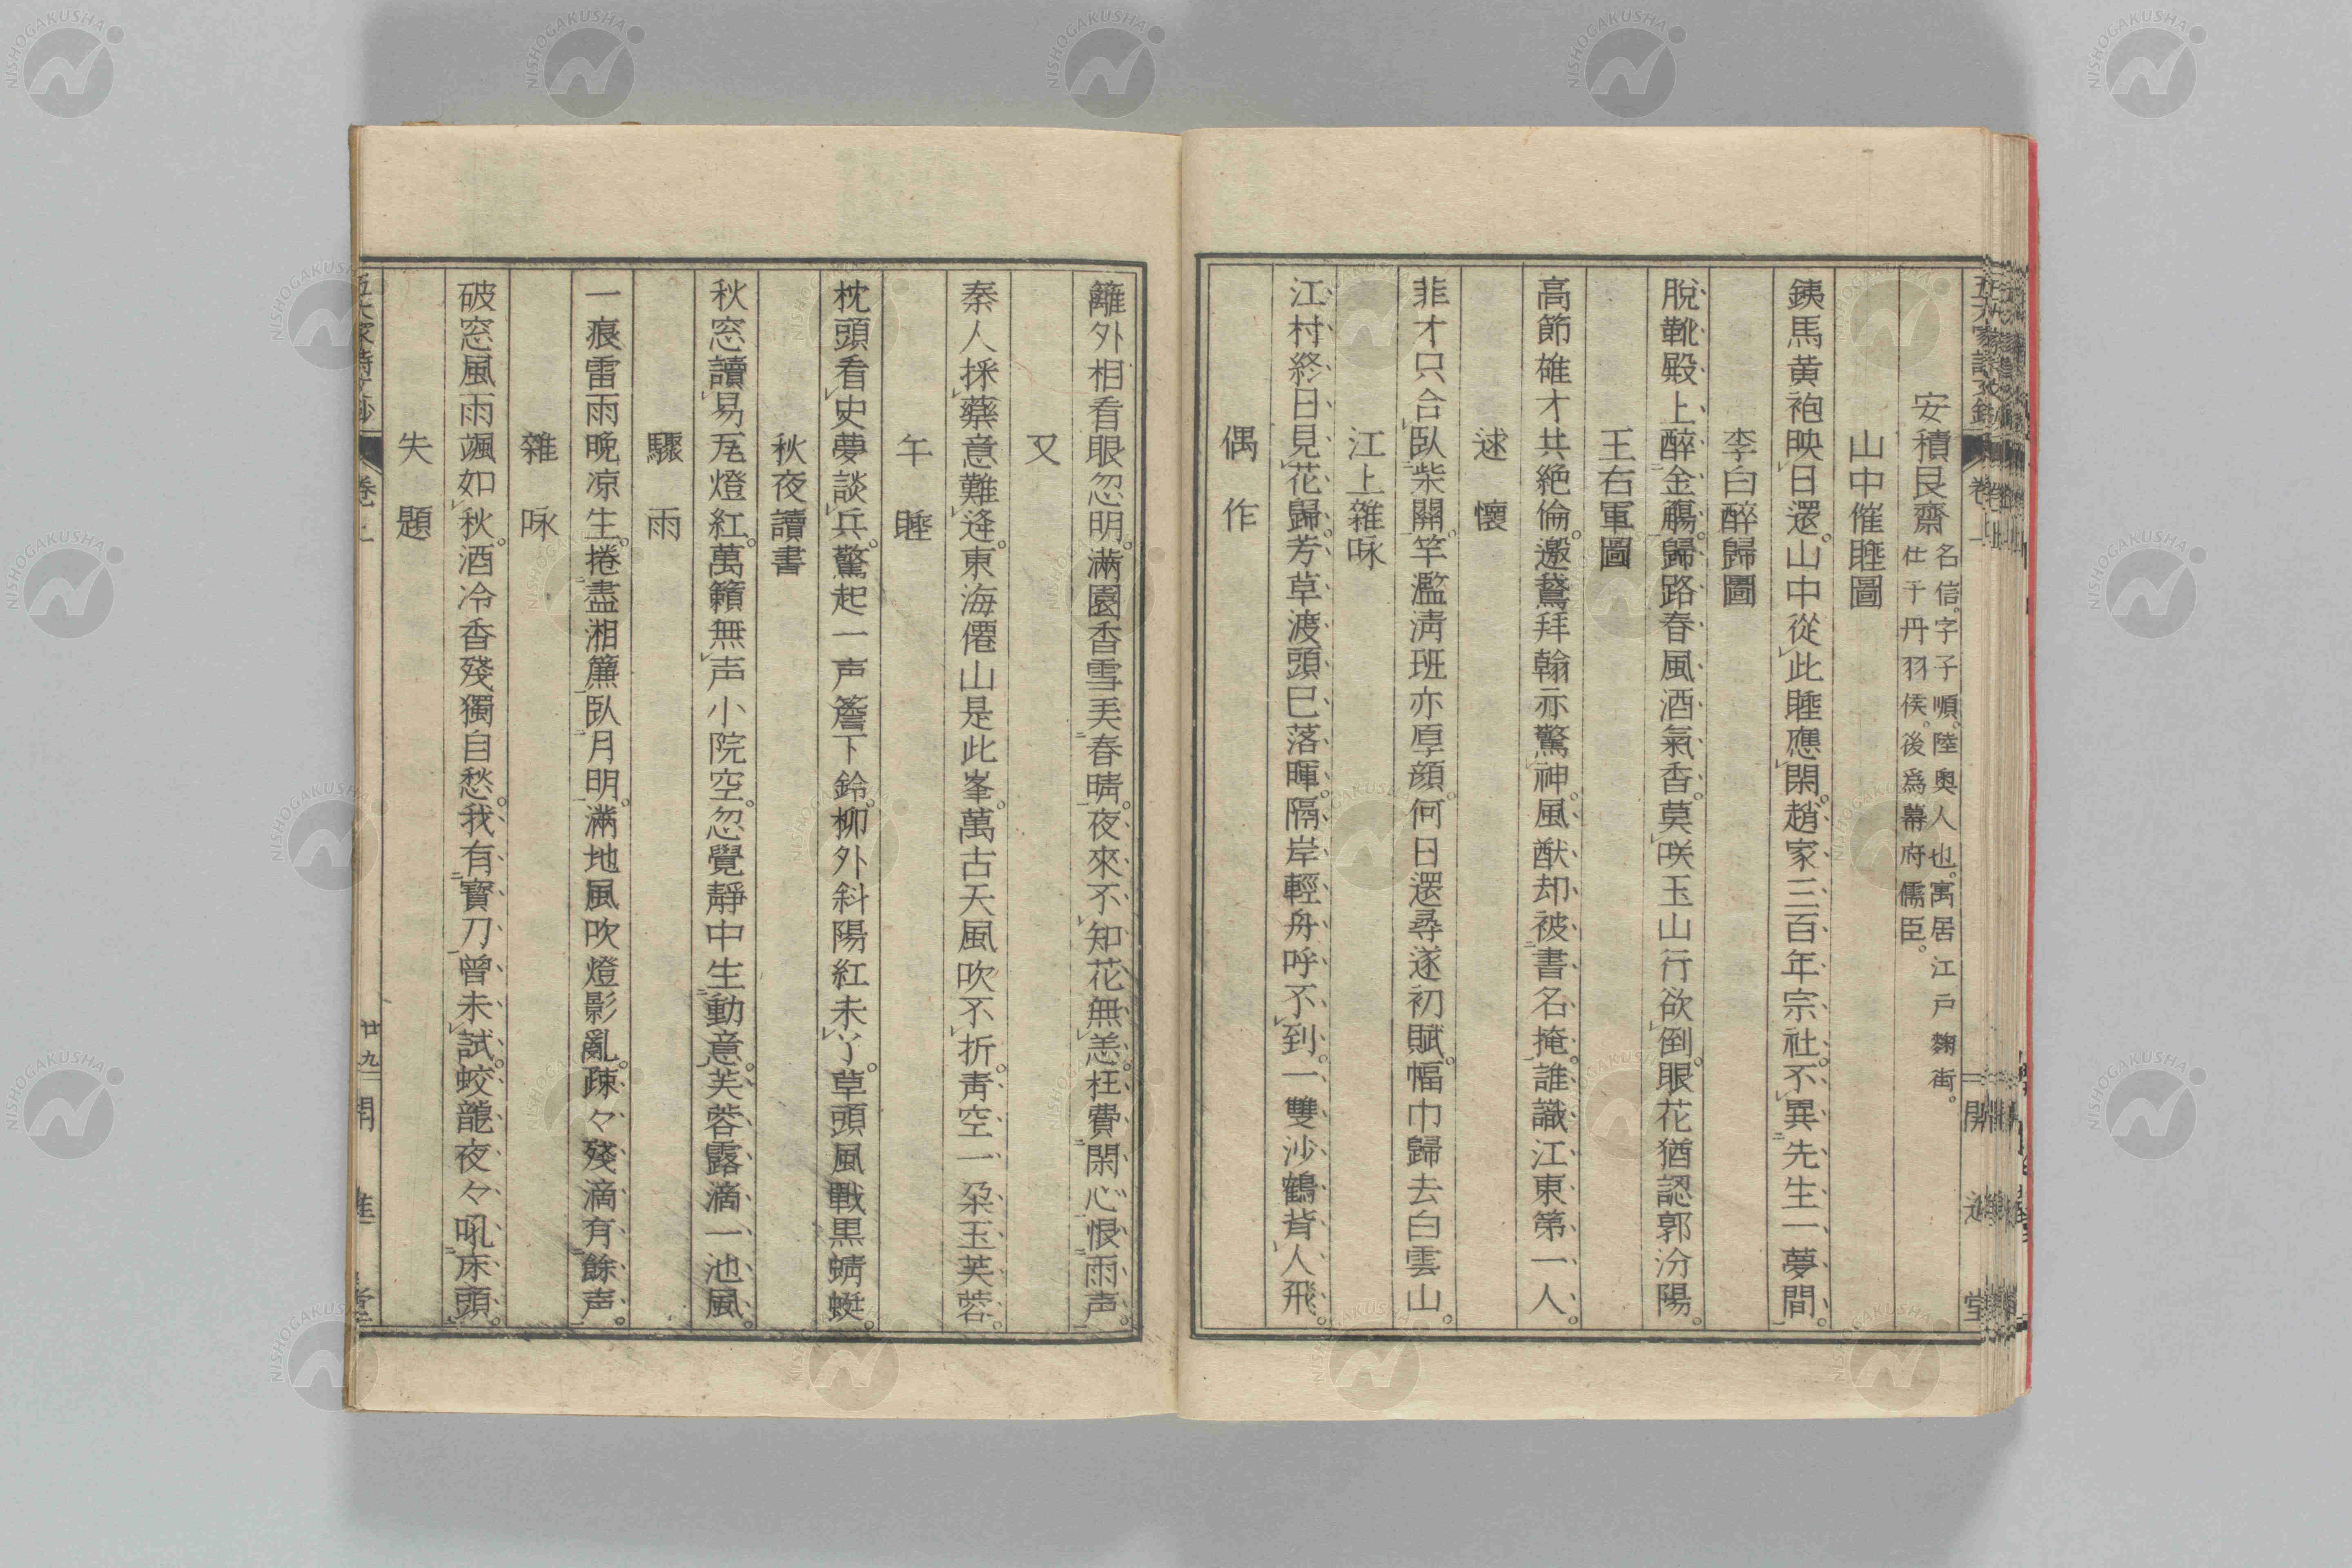 安積艮齋 名信。字子順。陸奥人也。寓居江戸麹街。
仕于丹羽侯。後爲幕府儒臣。
山中催睡圖
銕馬黄袍映日還。山中從此睡應閑。趙家三百年宗社。不異先生一夢間。
李白醉歸圖
脫靴殿上醉金觴。歸路春風酒氣香。莫咲玉山行欲倒。眼花猶認郭汾陽。
王右軍圖
高節碓才共絶倫。邀鵞拜翰亦驚神。風猷却被書名掩。誰識江東第一人。
述懷
菲才只合臥柴關。竿濫淸班亦厚顔。何日還尋遂初賦。幅巾歸去白雲山。
江上雜咏
江村終日見花歸。芳草渡頭已落暉。隔岸輕舟呼不到。一雙沙鶴背人飛。
偶作
籬外相看眼忽明。滿園香雪弄春晴。夜來不知花無恙。枉費閑心恨雨声。
又
秦人採藥意難逢。東海僊山是此峯。萬古天風吹不折。青空一朶玉芙蓉。
午睡
枕頭看史夢談兵。驚起一声簷下鈴。柳外斜陽紅未了。草頭風戰黒蜻蜓。
秋夜讀書
秋窓讀易瓦燈紅。萬籟無声小院空。忽覺靜中生動意。芙蓉露滴一池風。
驟雨
一痕雷雨晩凉生。捲盡湘簾臥月明。滿地風吹燈影亂。疎々殘滴有餘声。
雜咏
破窓風雨颯如秋。酒冷香殘獨自愁。我有寶刀曾未試。蛟龍夜々吼床頭。
失題
廿九